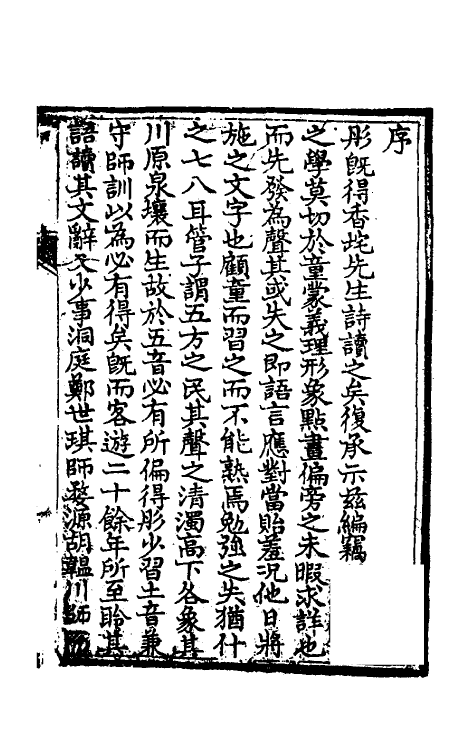 序
彤旣得香垞先生詩讀之矣復承示玆編竊
之學莫切於童蒙義理形象點畫偏旁之未暇求詳也
而先發為聲其或失之即語言應對當貽羞况他日將
施之文字也顧童而習之而不能熟焉勉強之失猶什
之七八耳管子謂五方之民其聲之清濁高下各象其
川原泉壤而生故於五音必有所偏得彤少習土音兼
守師訓以為必有得矣旣而客遊二十餘年所至聆其
語讀其文辭又少事洞庭鄭世琪師婺源胡韞川師